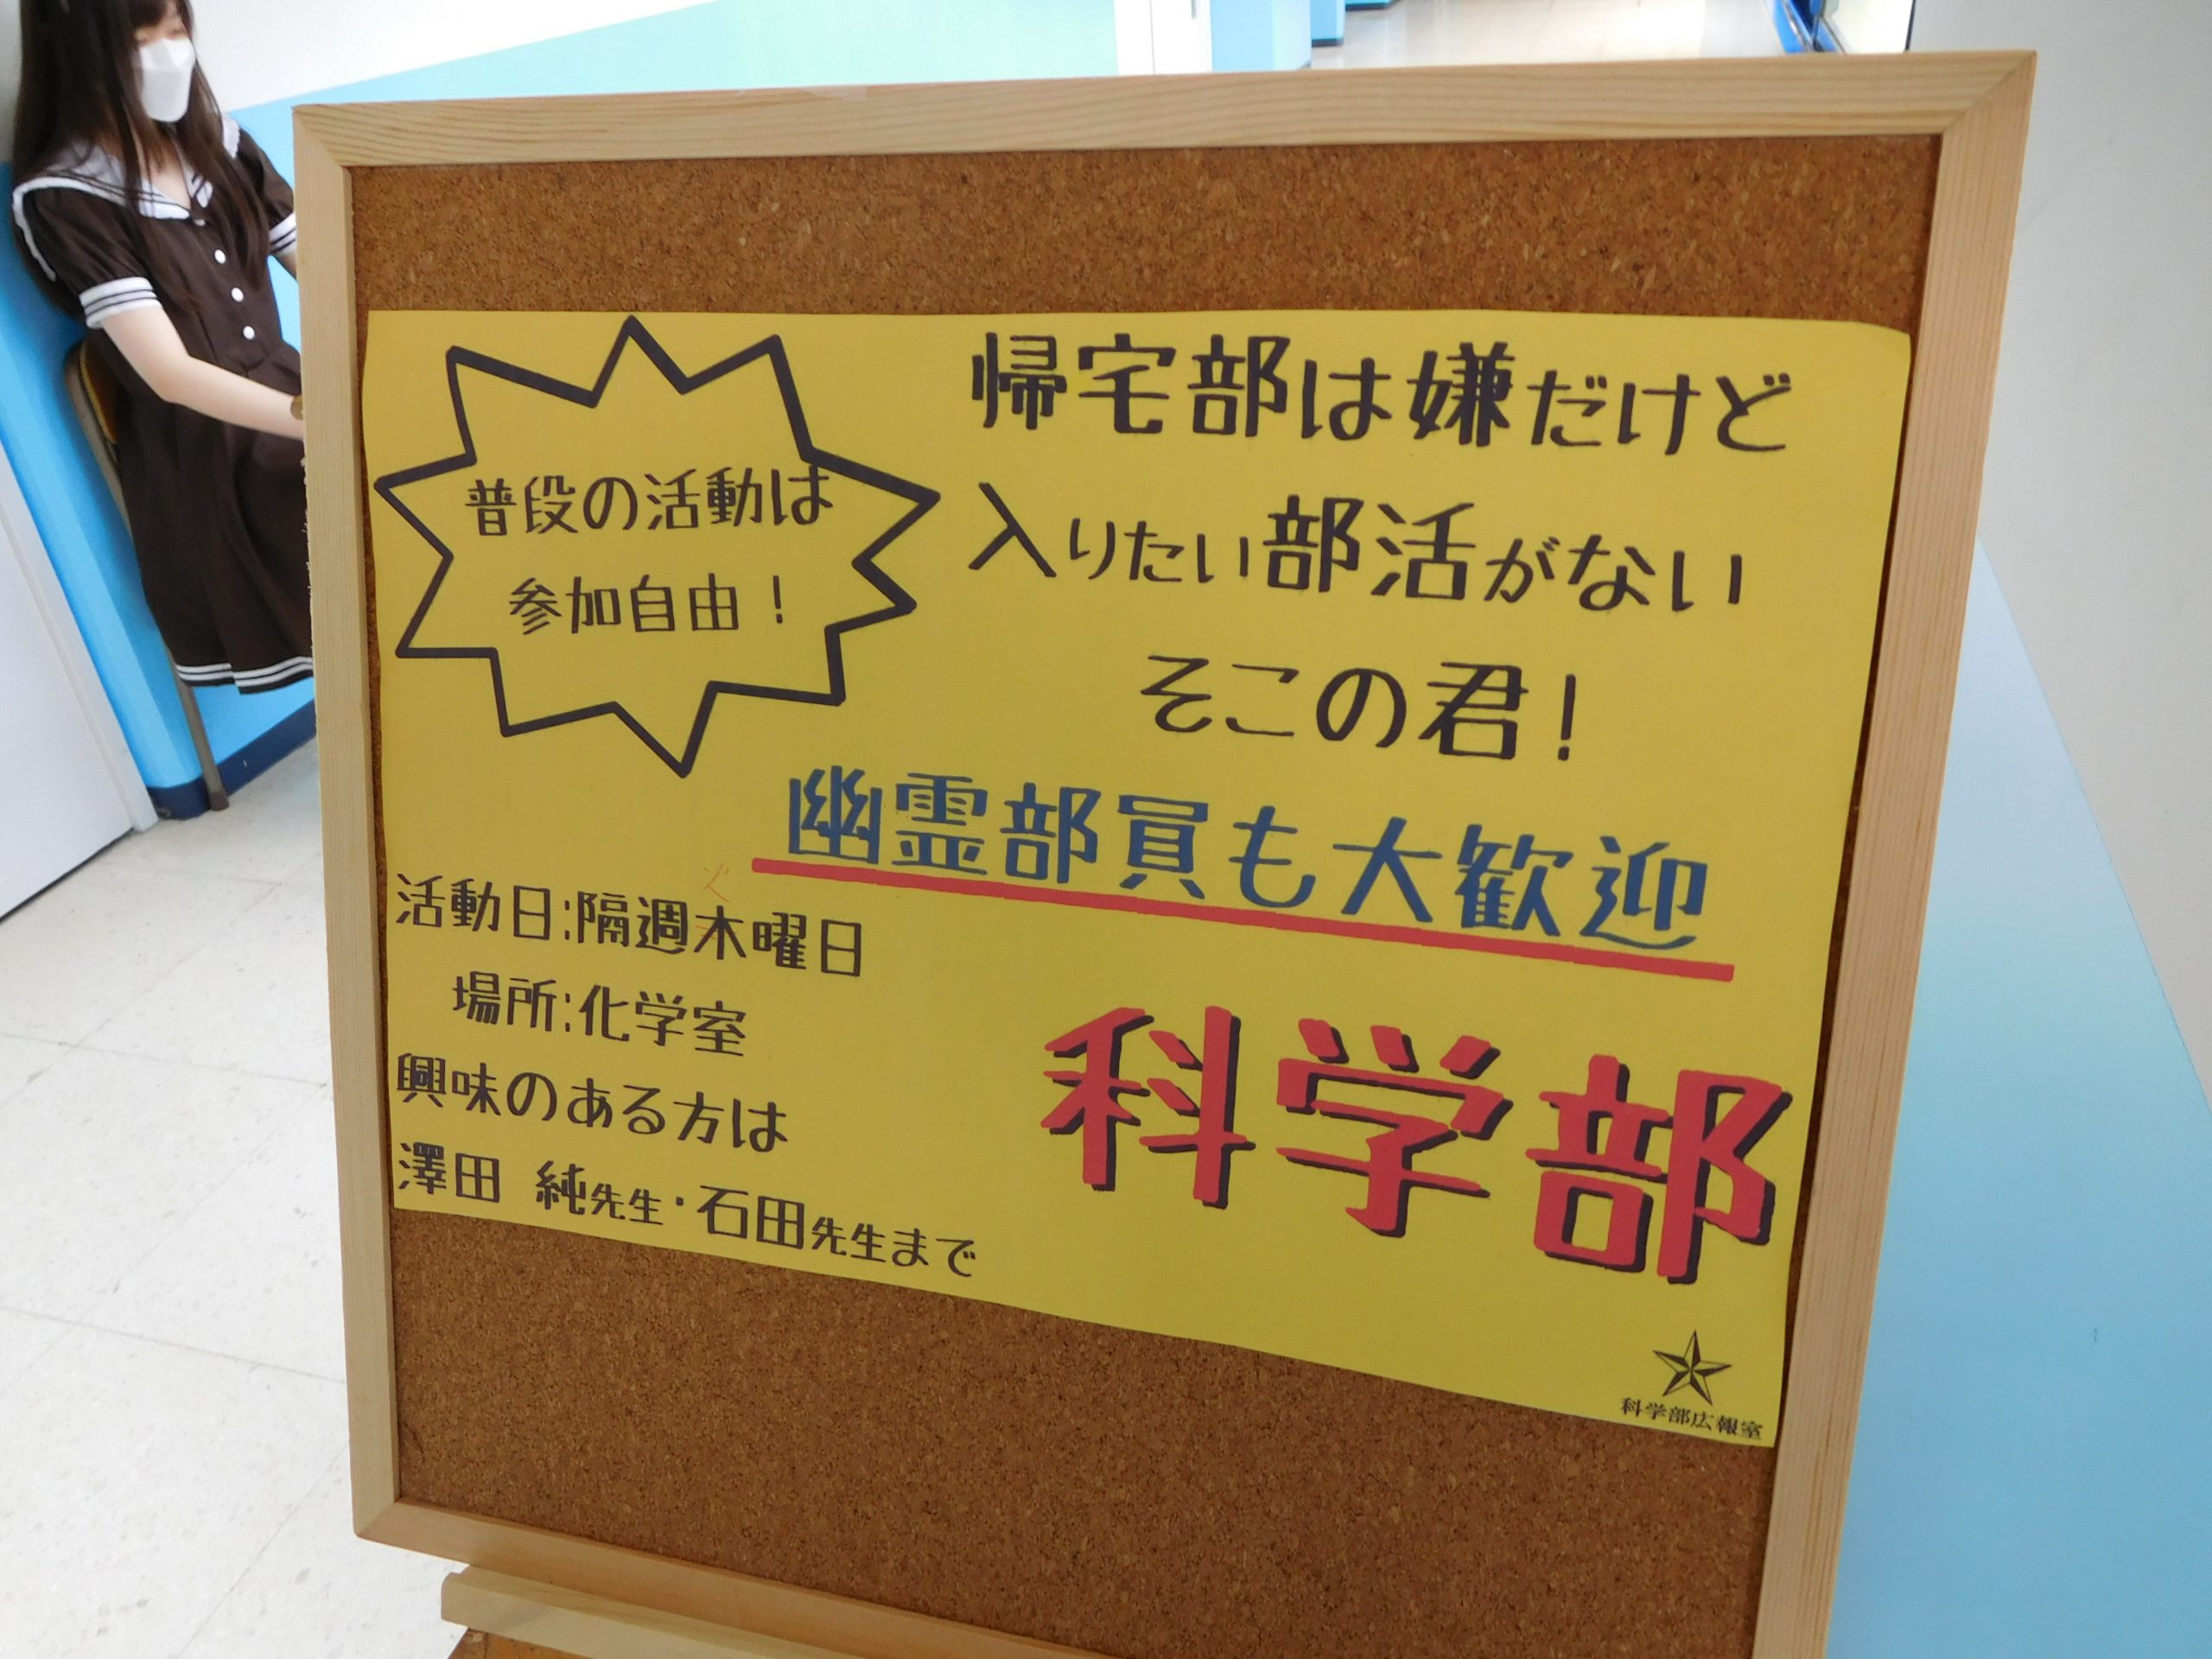 帰宅部は嫌だけど
入りたい部活がない
そこの君！
普段の活動は
参加自由！
幽霊部員も大歓迎
活動日:隔週木曜日
火
場所:化学室
興味のある方は
澤田 純先生・石田先生まで
科学部
科学部広報室